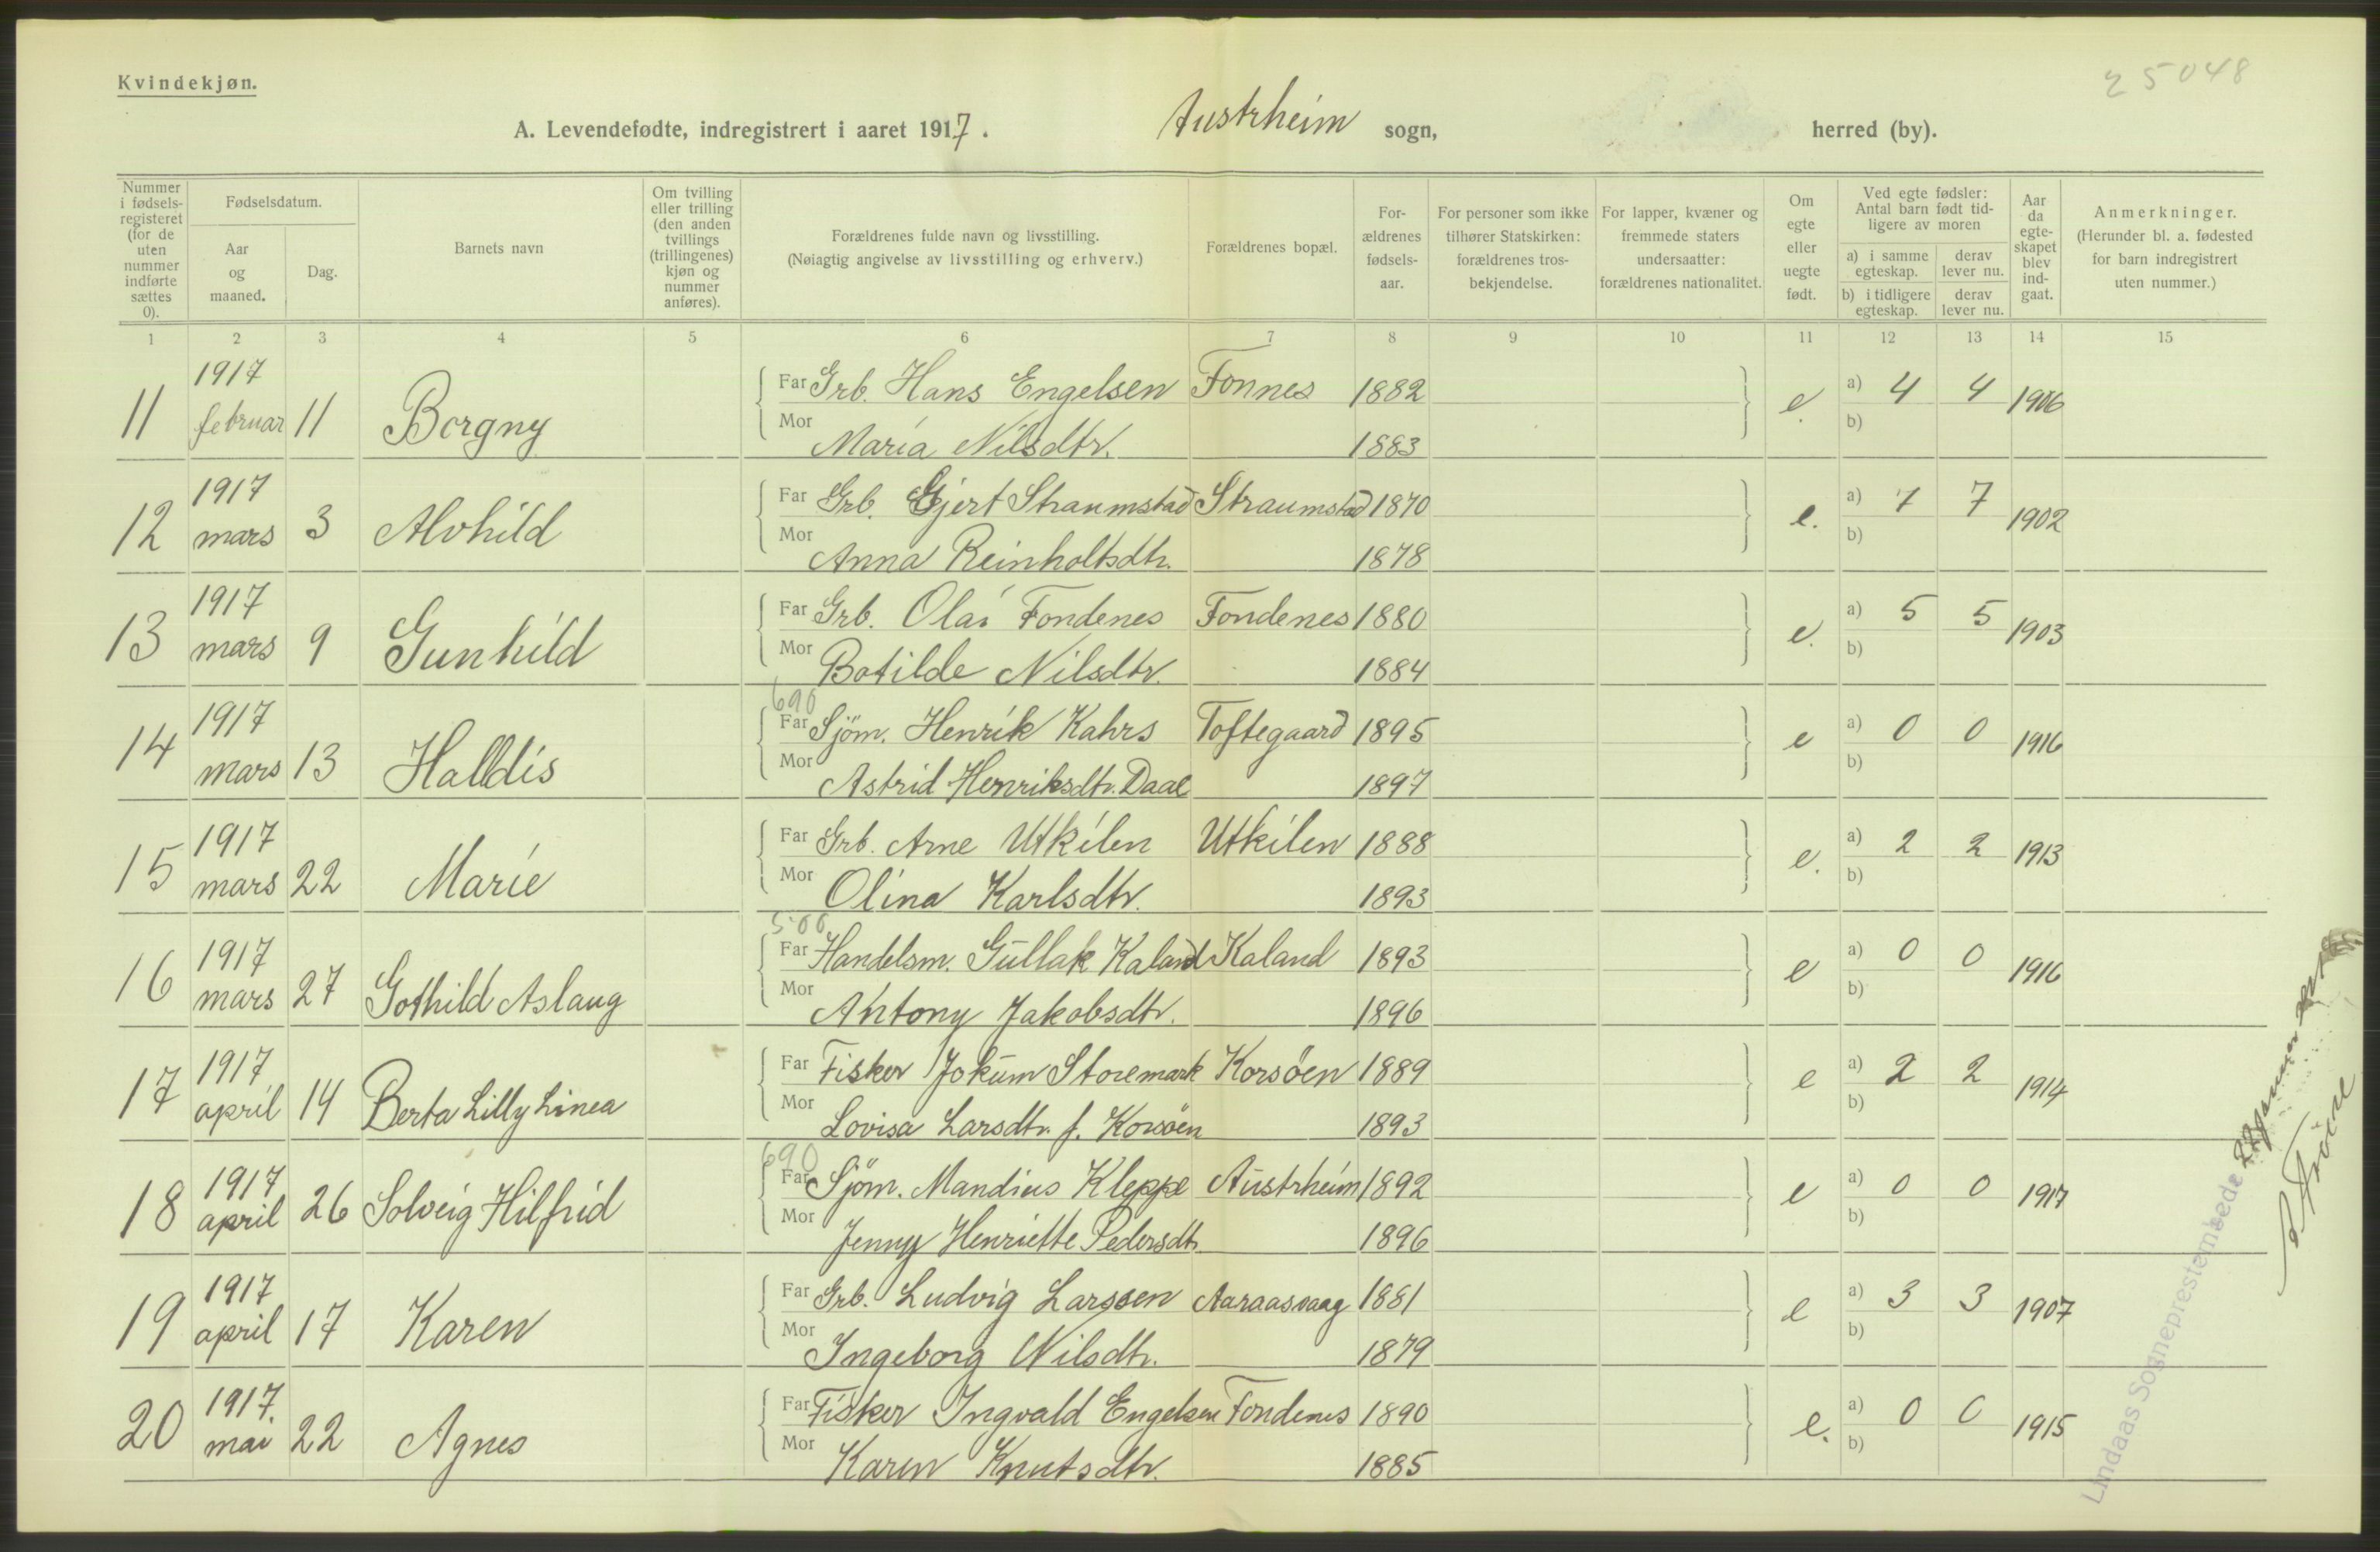 Kvindekjøn.
25048
A. Levendefødte, indregistrert i aaret 1917. Austrheim sogn, herred (by).
Nummer i fødsels-registeret (for de uten nummer indførte sættes 0).
Fødselsdatum.
Aar og maaned.
Dag.
Barnets navn
Om tvilling eller trilling (den anden tvillings (trillingenes) kjøn og nummer anføres).
Forældrenes fulde navn og livsstilling.
(Nøiagtig angivelse av livsstilling og erhverv.)
Forældrenes bopæl.
For-ældrenes fødsels-aar.
For personer som ikke tilhører Statskirken: forældrenes tros-bekjendelse.
For lapper, kvæner og fremmede staters undersaatter: forældrenes nationalitet.
Om egte eller uegte født.
Ved egte fødsler: Antal barn født tid-ligere av moren
a) i samme egteskap. derav lever nu.
b) i tidligere egteskap. derav lever nu.
Aar da egte-skapet blev ind-gaat.
Anmerkninger.
(Herunder bl. a. fødested for barn indregistrert uten nummer.)
1 2 3 4 5 6 7 8 9 10 11 12 13 14 15
11 1917 februar 11 Borgny Far Grb. Hans Engelsen Fonnes 1882 e. a) 4 4 1906
Mor Maria Nilsdtr. 1883 b)
12 1917 mars 3 Alvhild Far Grb. Gjert Straumstad Straumstad 1870 e. a) 7 7 1902
Mor Anna Reinholtsdtr. 1878 b)
13 1917 mars 9 Gunhild Far Grb. Olai Fondenes Fondenes 1880 e. a) 5 5 1903
Mor Botilde Nilsdtr. 1884 b)
690
14 1917 mars 13 Halldis Far Sjöm. Henrik Kahrs Toftegaard 1895 e a) 0 0 1916
Mor Astrid Henriksdtr. Daae 1897 b)
15 1917 mars 22 Marie Far Grb. Arne Utkilen Utkilen 1888 e. a) 2 2 1913
Mor Olina Karlsdtr. 1893 b)
500
16 1917 mars 27 Gothild Aslaug Far Handelsm. Gullak Kaland Kaland 1893 e a) 0 0 1916
Mor Antony Jakobsdtr. 1896 b)
17 1917 april 14 Berta Lilly Linea Far Fisker Jokum Storemark Korsöen 1889 e a) 2 2 1914
Mor Lovisa Larsdtr. f. Korsöen 1893 b)
690
18 1917 april 26 Solveig Hilfrid Far Sjöm. Mandius Kleppe Austrheim 1892 e a) 0 0 1917
Mor Jenny Henriette Pedersdtr 1896 b)
19 1917 april 17 Karen Far Grb. Ludvig Larssen Aaraasvaag 1881 e a) 3 3 1907
Mor Ingeborg Nilsdtr. 1879 b)
20 1917. mai 22 Agnes Far Fisker Ingvald Engelsen Fondenes 1890 e. a) 0 0 1915
Mor Karen Knutsdtr. 1885 b)
Lindaas Sogneprestembede